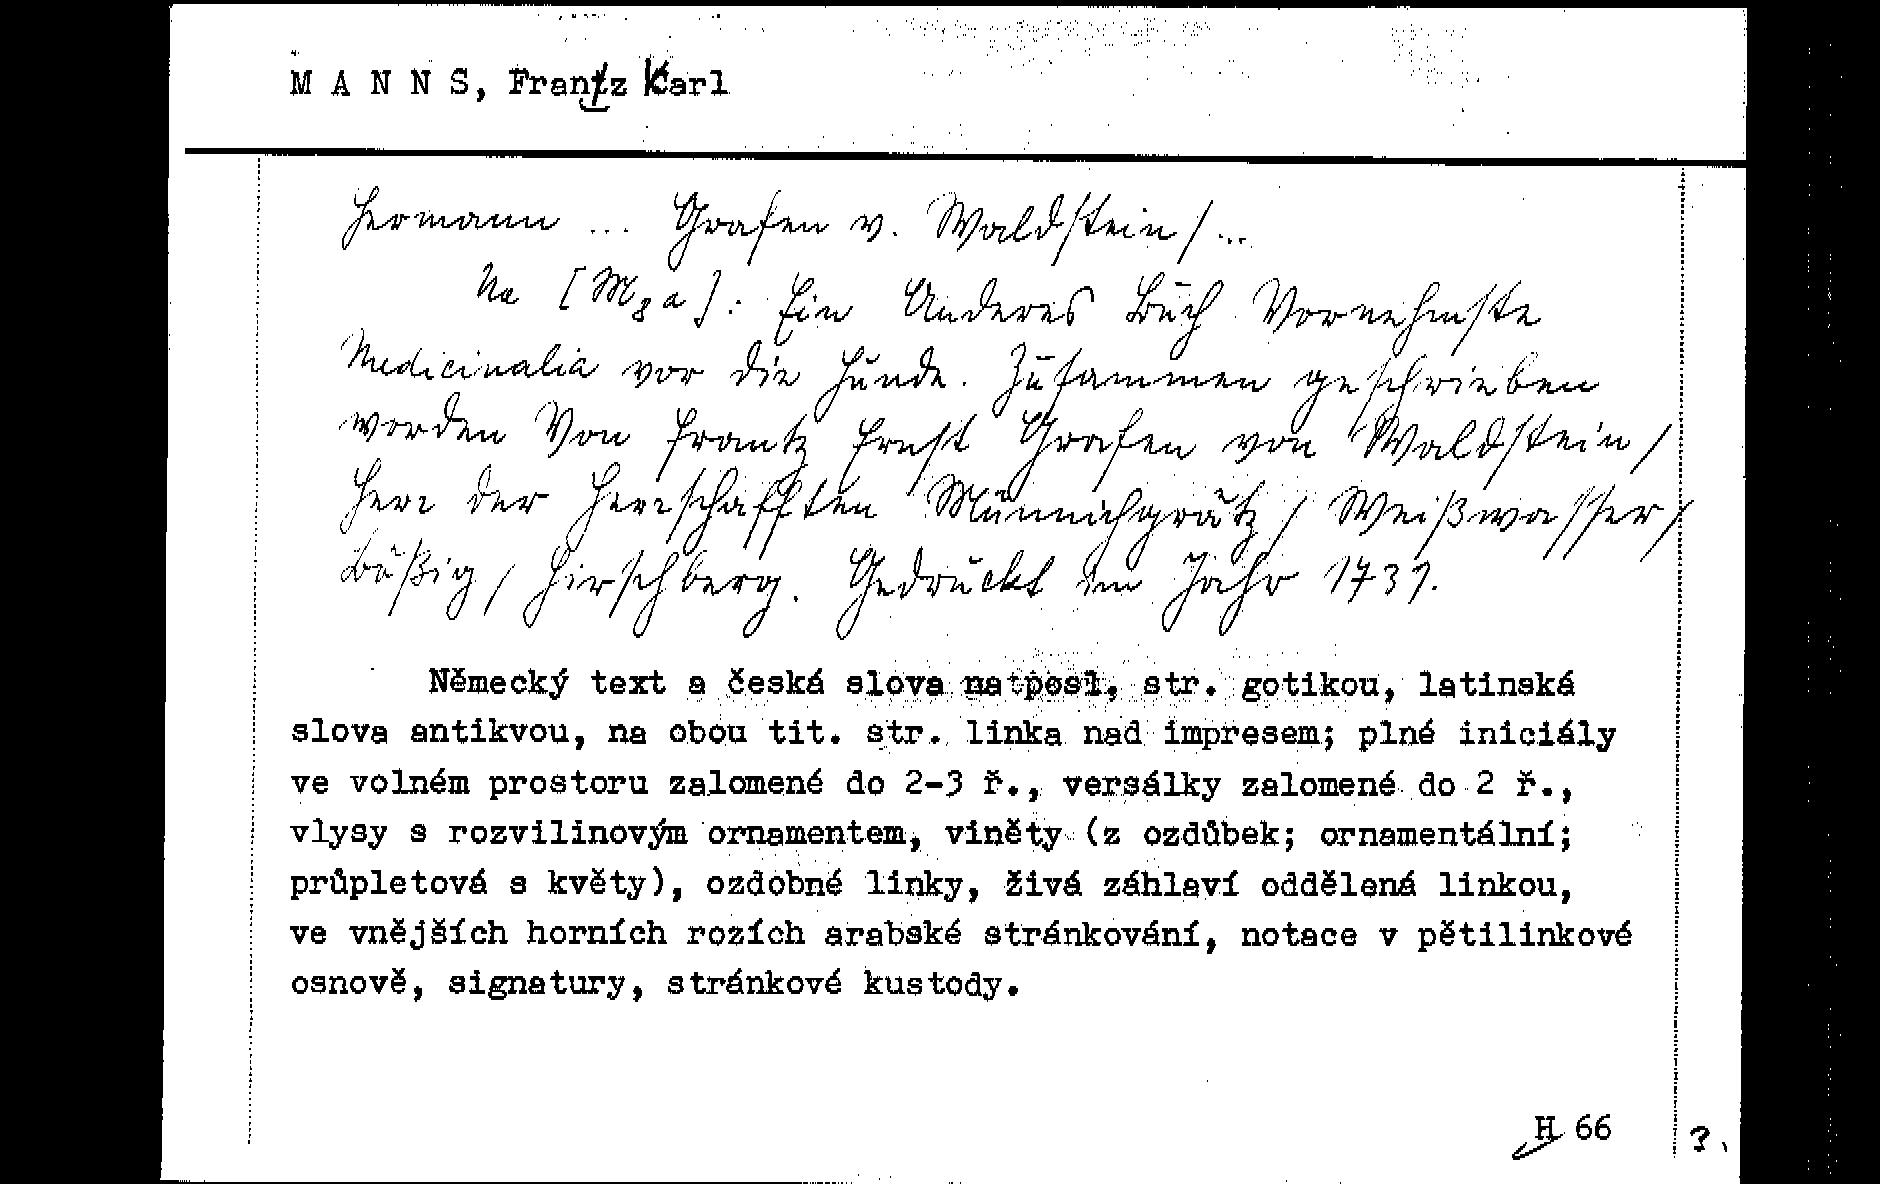 M A N N S, Frantz Karl
Hermann ... Grafen v. Waldstein / ...
Na [M8a]: Ein Anderes Buch Vornehmste
Medicinalia vor die Hunde. Zusammen geschrieben
worden Von Frantz Ernst Grafen von Waldstein /
Herr der Herrschafften Münnichgrätz / Weißwasser /
Bößig / Hirschberg. Gedruckt im Jahr 1731.
Německý text a česká slova na posl. str. gotikou, latinská
slova antikvou, na obou tit. str. linka nad impresem; plné iniciály
ve volném prostoru zalomené do 2-3 ř., versálky zalomené do 2 ř.,
vlysy s rozvilinovým ornamentem, viněty (z ozdůbek; ornamentální;
průpletová s květy), ozdobné linky, živá záhlaví oddělená linkou,
ve vnějších horních rozích arabské stránkování, notace v pětilinkové
osnově, signatury, stránkové kustody.
H 66
?.